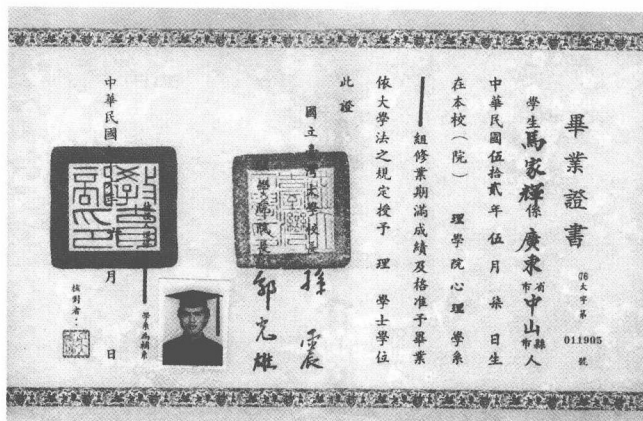 畢業證書
76大字第011905號
學生馬家輝係廣東省市中山縣市人
中華民國伍拾貳年伍月柒日生
在本校(院)理學院心理學系
組修業期滿成績及格准予畢業
依大學法之規定授予理學士學位
此證
國立臺灣大學校長孫震
學院院長郭光雄
中華民國
月
日
學系為輔系
核對者：